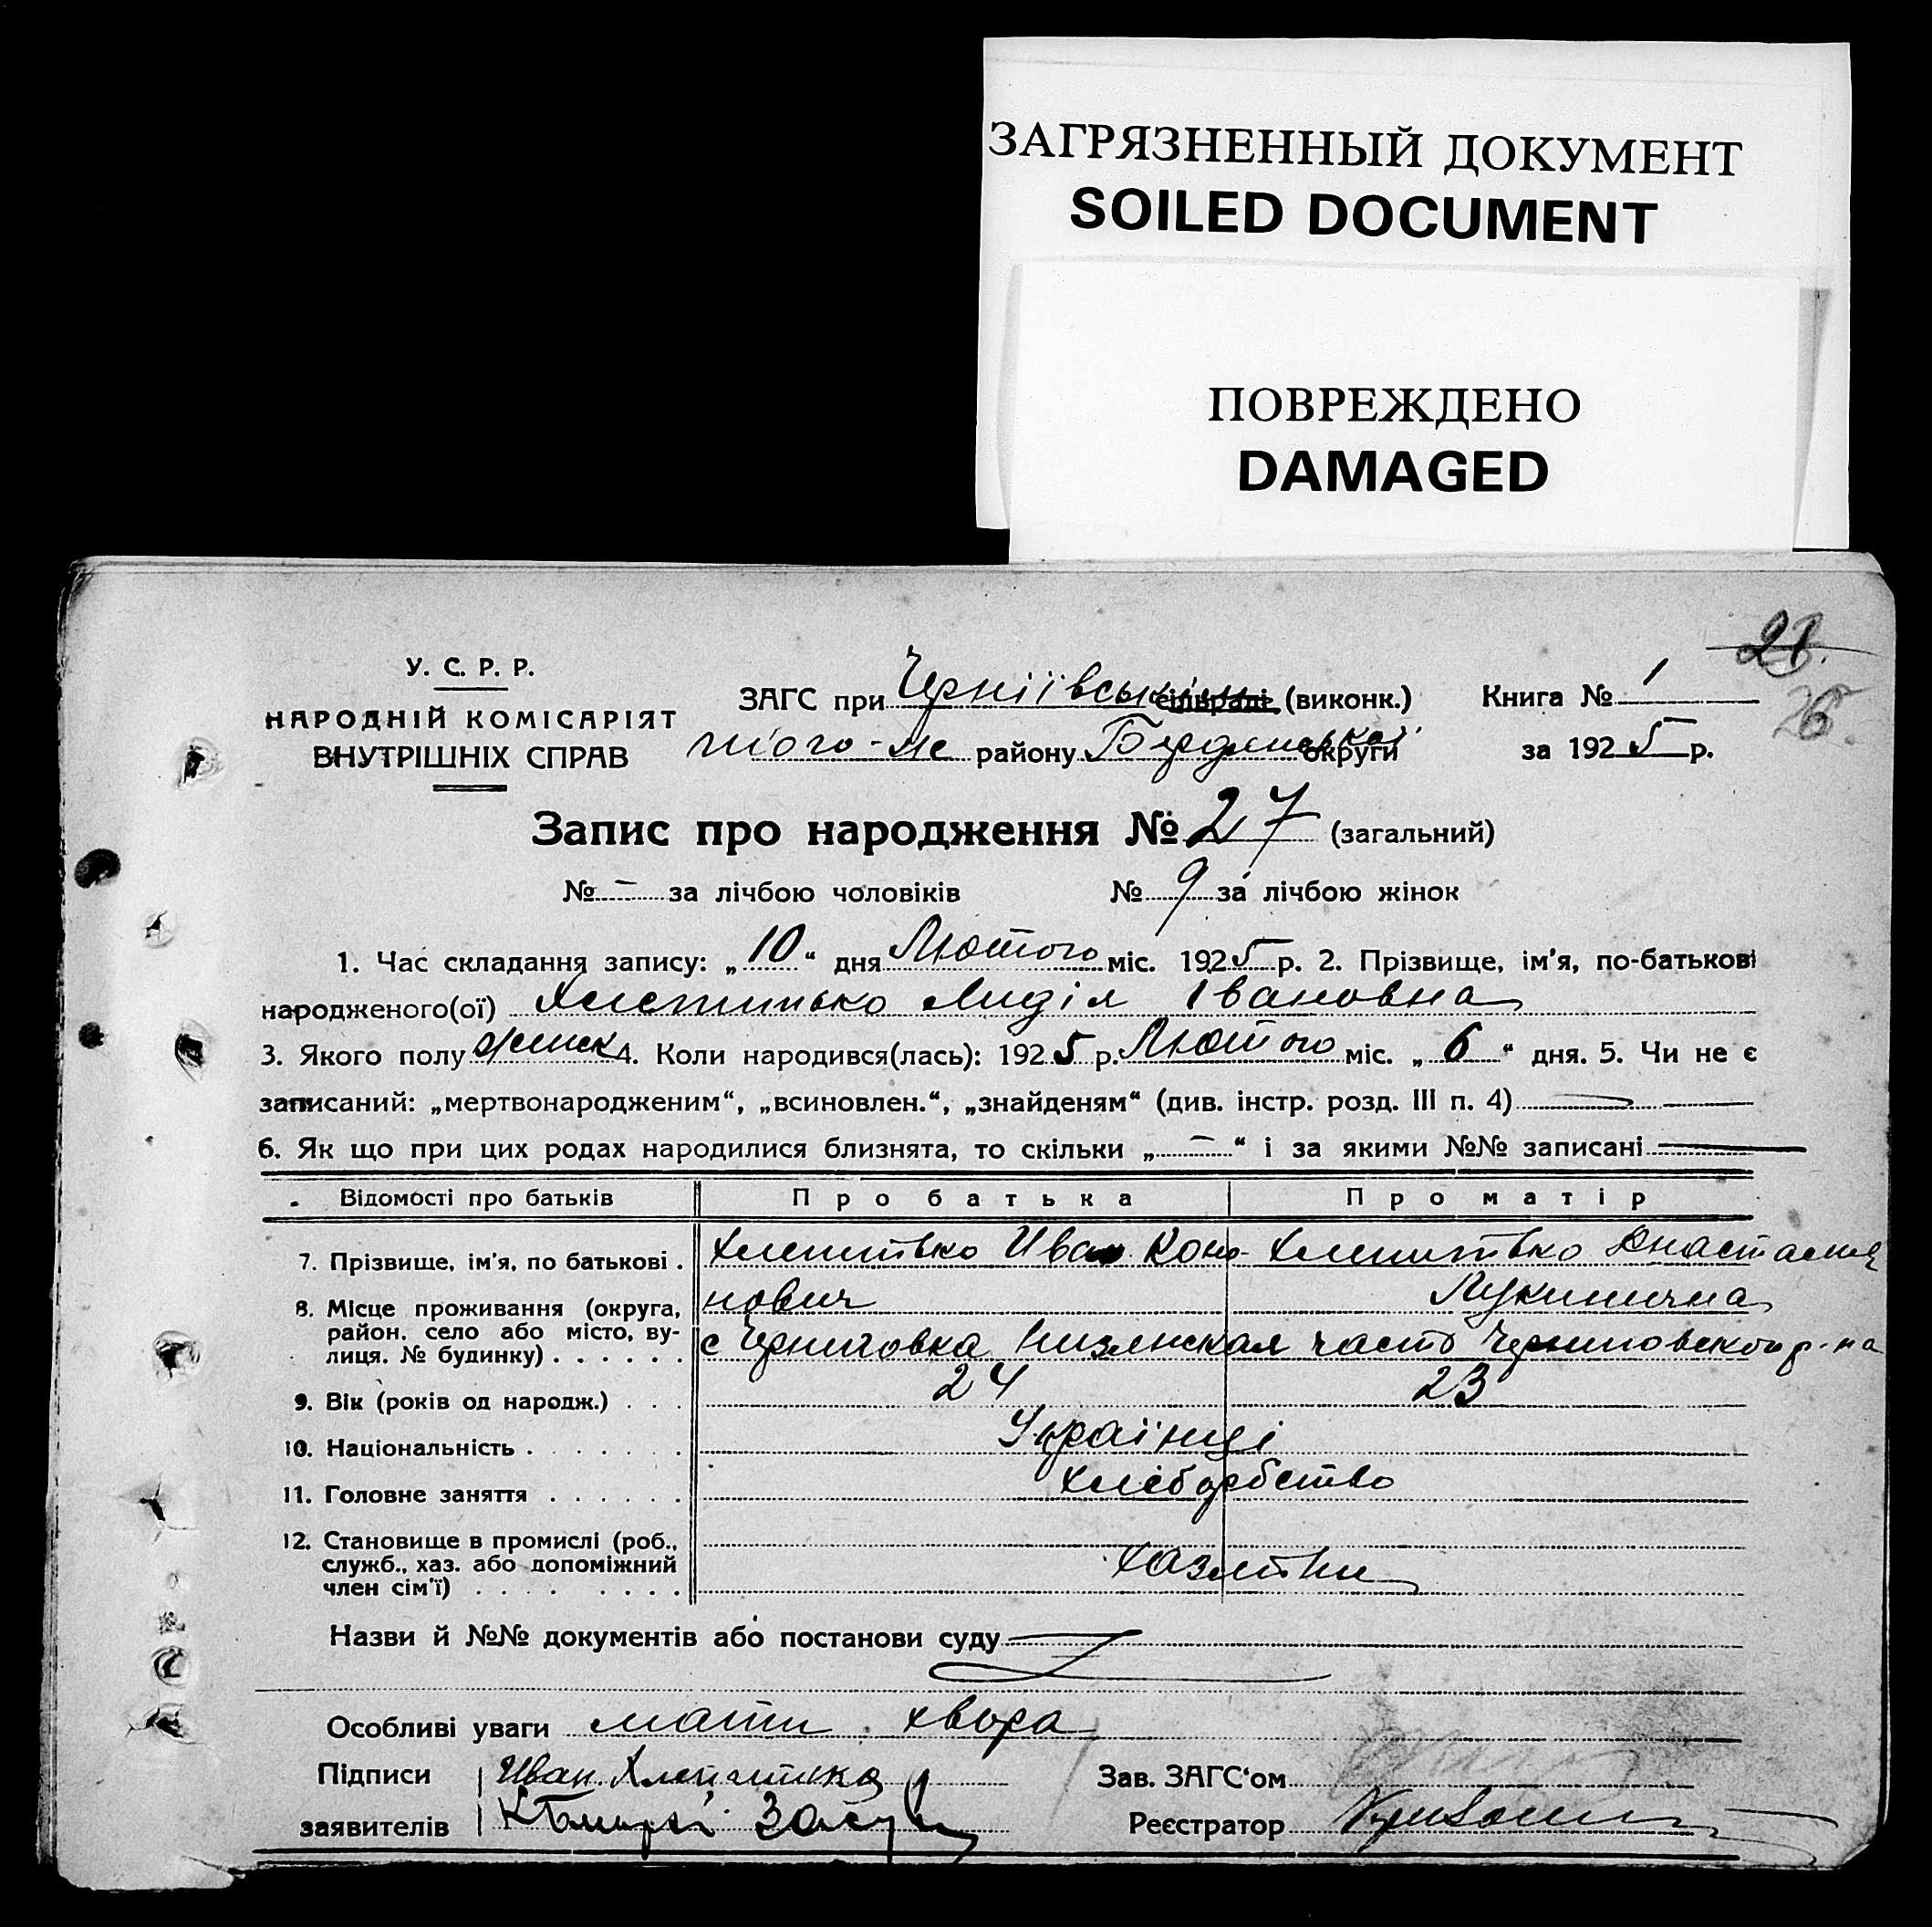 ЗАГРЯЗНЕННЫЙ ДОКУМЕНТ
SOILED DOCUMENT
ПОВРЕЖДЕНО
DAMAGED
21
26
У. С. Р. Р.
НАРОДНІЙ КОМІСАРІЯТ
ВНУТРІШНІХ СПРАВ
ЗАГС при сільраді (виконк.)
району Бердянської округи
Книга № 1
за 1925 р.
Запис про народження № 27 (загальний)
№ - за лічбою чоловіків № 9 за лічбою жінок
1. Час складання запису: „10“ дня Лютого міс. 1925 р. 2. Прізвище, ім'я, по-батькові
народженого(ої) Лидія Івановна
3. Якого полу женск 4. Коли народився(лась): 1925 р. Лютого міс. „6“ дня. 5. Чи не є
записаний: „мертвонародженим“, „всиновлен.“, „знайденям“ (див. інстр. розд. III п. 4) —
6. Як що при цих родах народилися близнята, то скільки „-“ і за якими №№ записані —
Відомості про батьків Про батька Про матір
7. Прізвище, ім'я, по батькові . Иван Коно- Анастасия
нович Лукинична
8. Місце проживання (округа, район, село або місто, ву-
лиця, № будинку) . . . . . . с Черниговка Низянская часть Черниговского р-на
9. Вік (років од народж.) . . . 24 23
10. Національність . . . . . . . Українці
11. Головне заняття . . . . . . хліборобство
12. Становище в промислі (роб.,
служб., хаз. або допоміжний
член сім'ї) . . . . . . . . . хазяїни
Назви й №№ документів або постанови суду
Особливі уваги мати хвора
Підписи Иван
заявителів
Зав. ЗАГС'ом
Реєстратор